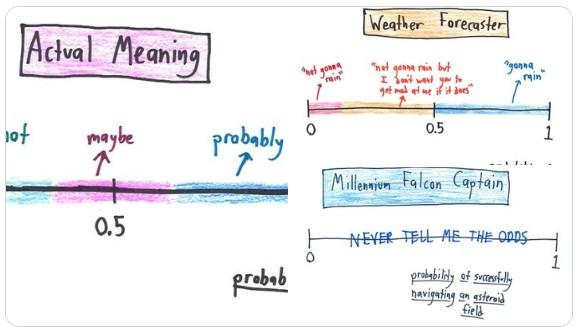 Actual Meaning
not
maybe
probably
0.5
probab
Weather Forecaster
"not gonna
rain"
"not gonna rain but
I don't want you to
get mad at me if it does"
"gonna
rain"
0
0.5
1
Millennium Falcon Captain
NEVER TELL ME THE ODDS
0
1
probability of successfully
navigating an asteroid
field